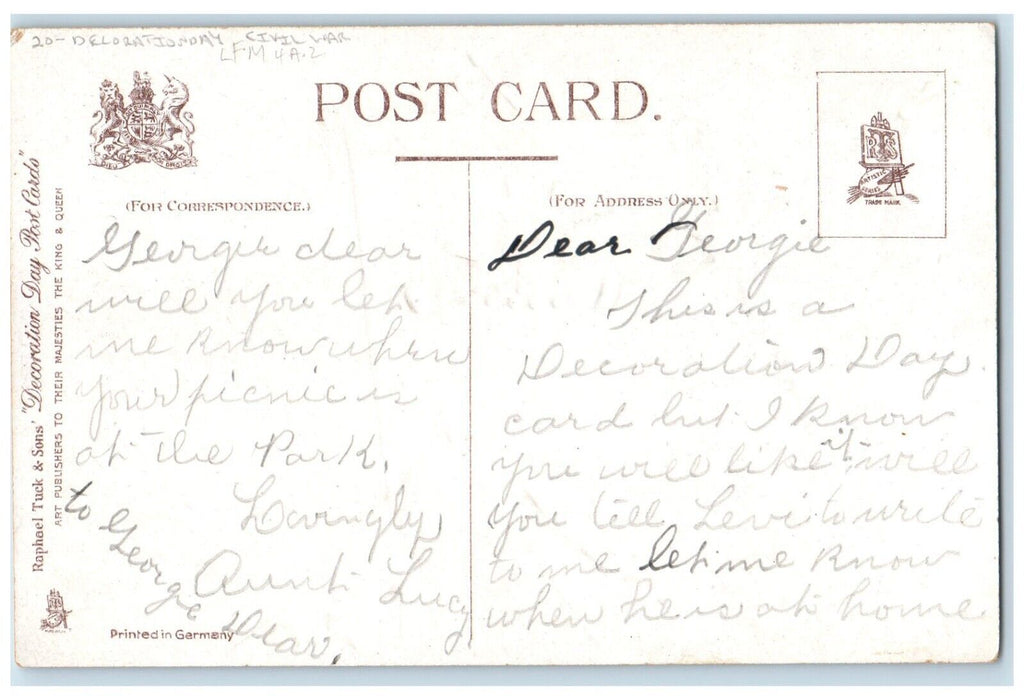 20- DECORATION DAY CIVIL WAR
LFM 4A.2
POST CARD.
DIEU ET MON DROIT
RTS
ARTISTIC SERIES
TRADE MARK.
Raphael Tuck & Sons' "Decoration Day Post Cards"
ART PUBLISHERS TO THEIR MAJESTIES THE KING & QUEEN
(FOR CORRESPONDENCE.)
Georgie dear
will you let
me know when
your picnic is
at the Park.
Lovingly
Aunt Lucy
to George Dear.
Printed in Germany
(FOR ADDRESS ONLY.)
Dear Georgie
This is a
Decoration Day.
card but I know
you will like it. will
you tell Levi to write
to me let me know
when he is at home